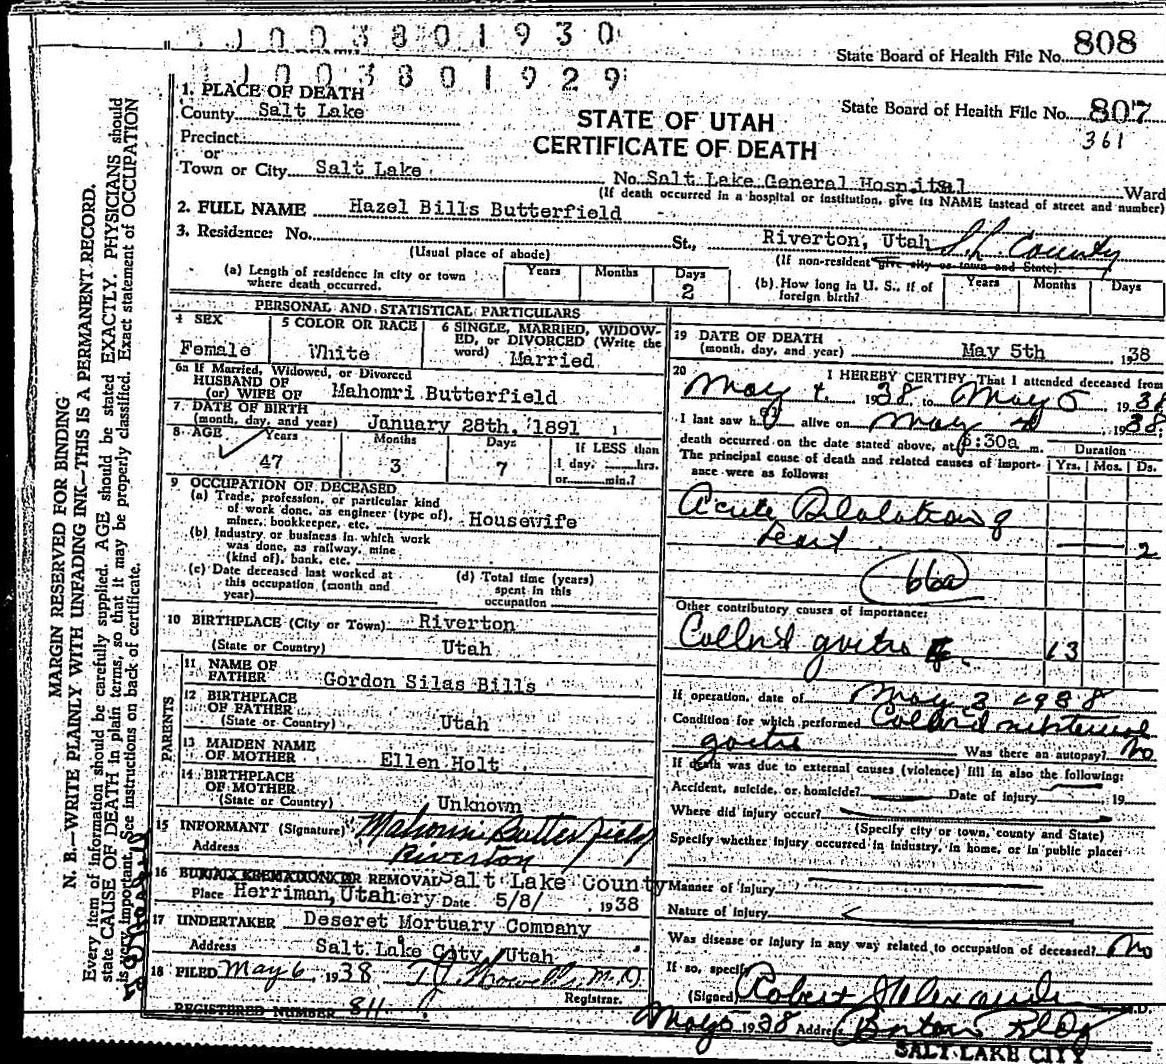 J 0 0 3 8 0 1 9 3 0
State Board of Health File No. 808
J 0 0 3 8 0 1 9 2 9
State Board of Health File No. 807
361
STATE OF UTAH
CERTIFICATE OF DEATH
1. PLACE OF DEATH
County Salt Lake
Precinct
or
Town or City Salt Lake No. Salt Lake General Hospital Ward
(If death occurred in a hospital or institution, give its NAME instead of street and number)
2. FULL NAME Hazel Bills Butterfield
3. Residence: No. St., Riverton, Utah S. L. County
(Usual place of abode) (If non-resident give city or town and State)
(a) Length of residence in city or town where death occurred. Years Months Days 2
(b) How long in U. S., if of foreign birth? Years Months Days
PERSONAL AND STATISTICAL PARTICULARS
4 SEX Female
5 COLOR OR RACE White
6 SINGLE, MARRIED, WIDOWED, or DIVORCED (Write the word) Married
6a If Married, Widowed, or Divorced
HUSBAND OF
(or) WIFE OF Mahomri Butterfield
7 DATE OF BIRTH
(month, day, and year) January 28th, 1891
8 AGE Years 47 Months 3 Days 7
If LESS than
1 day, hrs.
or min.?
9 OCCUPATION OF DECEASED
(a) Trade, profession, or particular kind
of work done, as engineer (type of),
miner, bookkeeper, etc. Housewife
(b) Industry or business in which work
was done, as railway, mine
(kind of), bank, etc.
(c) Date deceased last worked at
this occupation (month and
year)
(d) Total time (years)
spent in this
occupation
10 BIRTHPLACE (City or Town) Riverton
(State or Country) Utah
PARENTS
11 NAME OF
FATHER Gordon Silas Bills
12 BIRTHPLACE
OF FATHER
(State or Country) Utah
13 MAIDEN NAME
OF MOTHER Ellen Holt
14 BIRTHPLACE
OF MOTHER
(State or Country) Unknown
15 INFORMANT (Signature) Mahomri Butterfield
Address Riverton
16 BURIAL CREMATION OR REMOVAL Salt Lake County
Place Herriman, Utah ery Date 5/8/ 1938
17 UNDERTAKER Deseret Mortuary Company
Address Salt Lake City, Utah
18 FILED May 6, 1938 M.D.
Registrar.
REGISTERED NUMBER 811
19 DATE OF DEATH
(month, day, and year) May 5th 1938
20 I HEREBY CERTIFY That I attended deceased from
May 4. 1938. to May 5 1938
I last saw her alive on May 4 1938
death occurred on the date stated above, at 6:30a m.
The principal cause of death and related causes of importance were as follows:
Duration
Yrs. Mos. Ds.
Acute Dilalation of
Heart 2
66a
Other contributory causes of importance:
Colloid goitre 13
If operation, date of May 3 1938
Condition for which performed Colloid substernal
goitre Was there an autopsy? No
If death was due to external causes (violence) fill in also the following:
Accident, suicide, or homicide? Date of injury 19
Where did injury occur?
(Specify city or town, county and State)
Specify whether injury occurred in industry, in home, or in public place:
Manner of Injury
Nature of Injury
Was disease or injury in any way related to occupation of deceased? No
If so, specify
(Signed) Robert Alexander M.D.
May 5 1938 Address Boston Bldg
SALT LAKE CITY
MARGIN RESERVED FOR BINDING
N. B.—WRITE PLAINLY WITH UNFADING INK—THIS IS A PERMANENT RECORD.
Every item of information should be carefully supplied. AGE should be stated EXACTLY. PHYSICIANS should
state CAUSE OF DEATH in plain terms, so that it may be properly classified. Exact statement of OCCUPATION
is very important. See instructions on back of certificate.